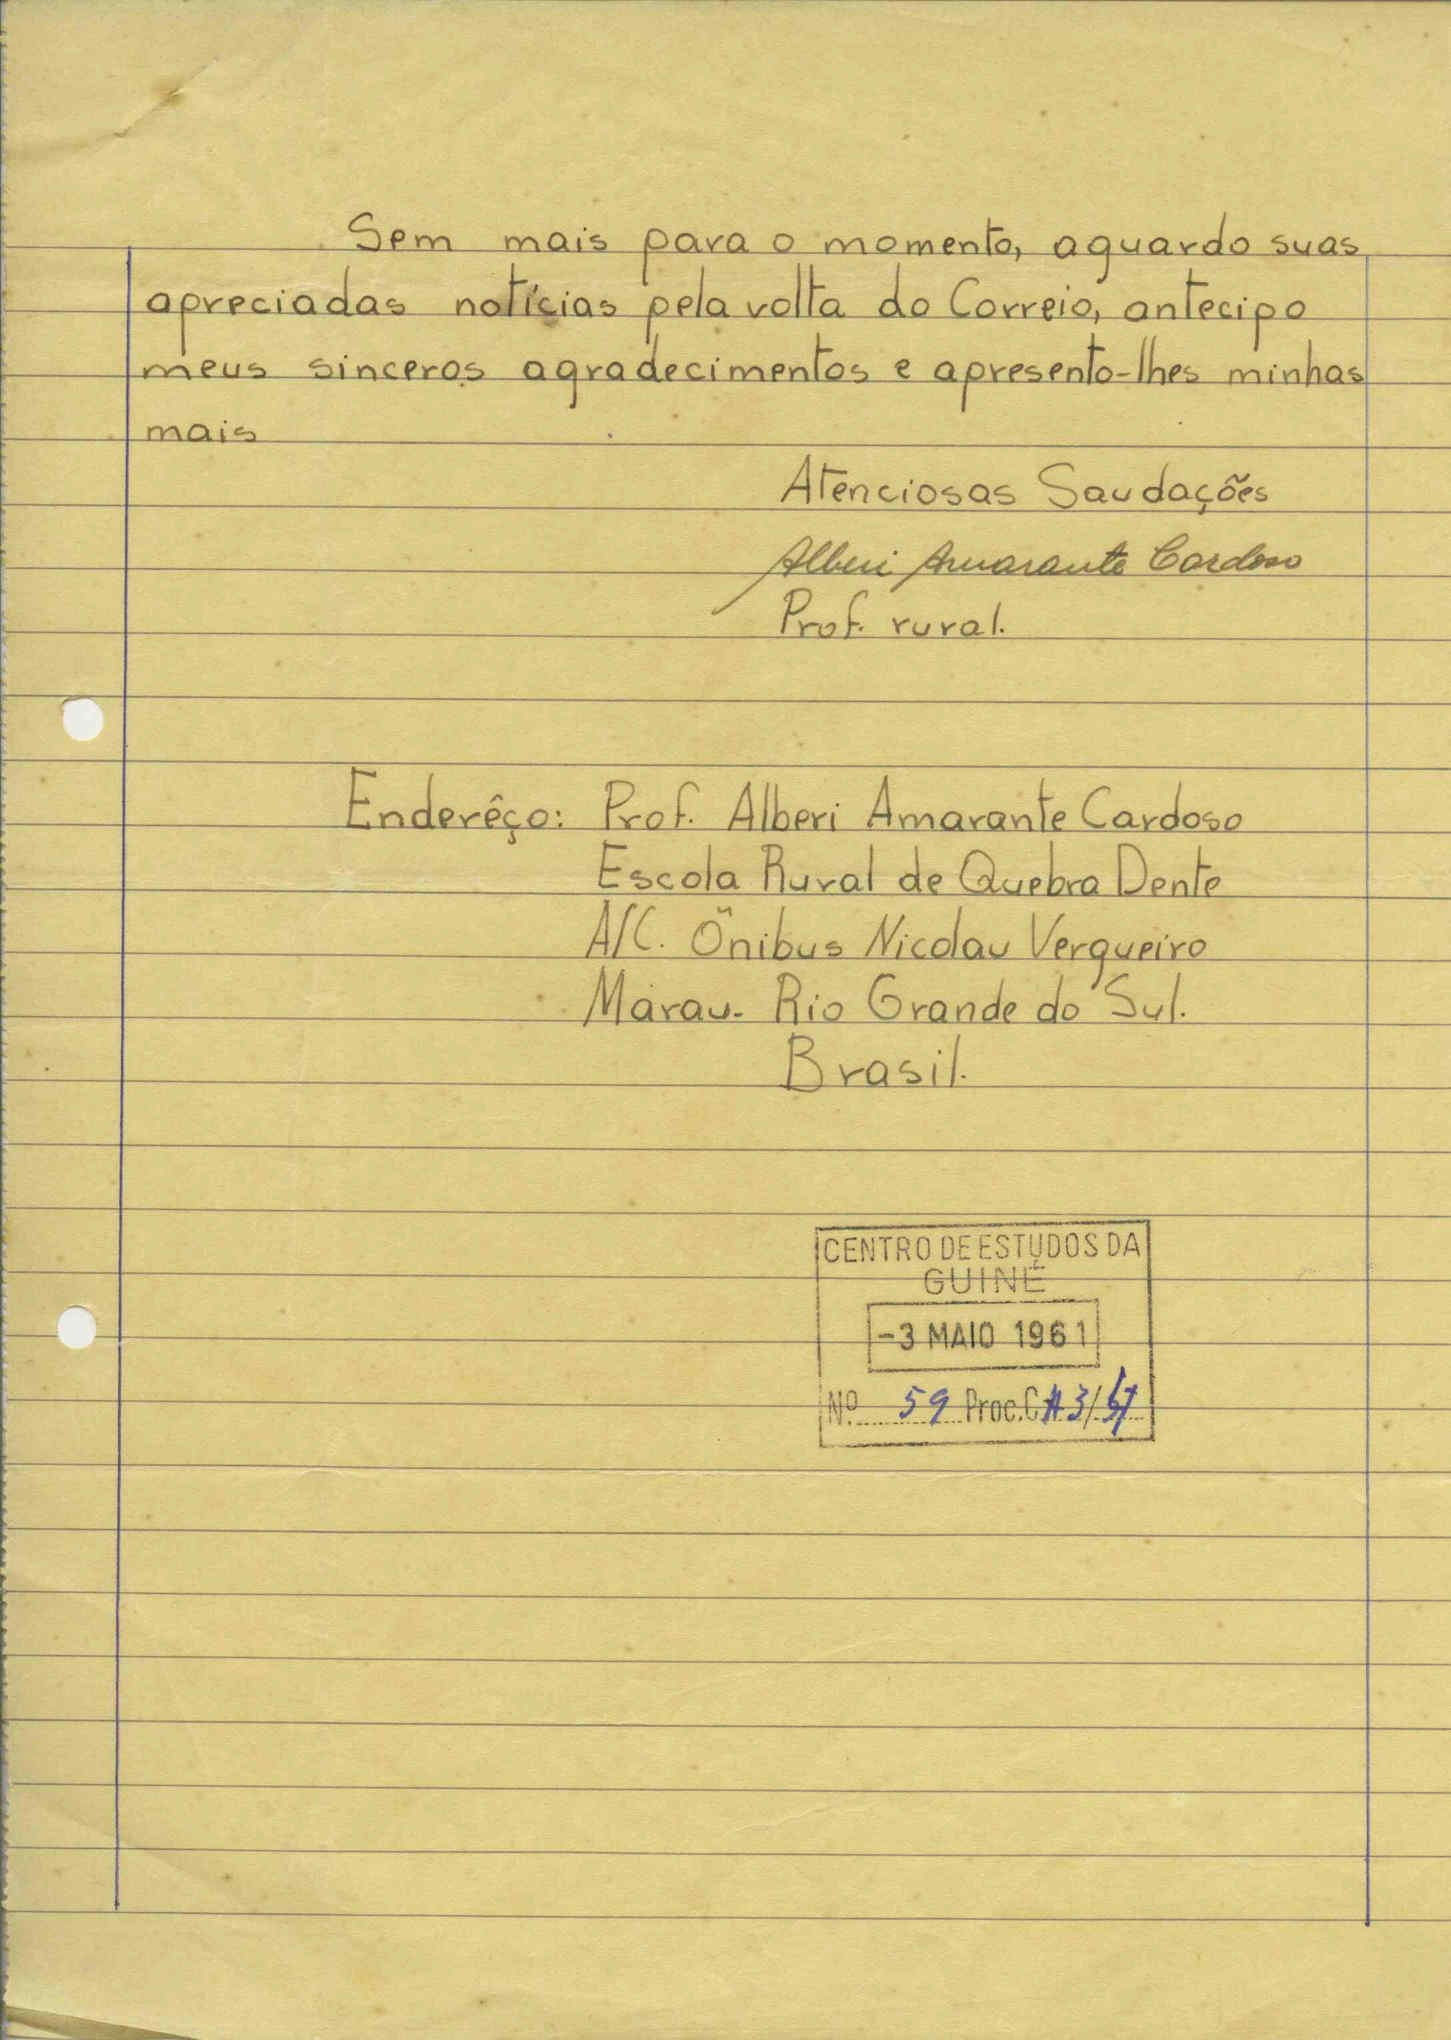 Sem mais para o momento, aguardo suas
apreciadas notícias pela volta do Correio, antecipo
meus sinceros agradecimentos e apresento-lhes minhas
mais
Atenciosas Saudações
Alberi Amarante Cardoso
Prof. rural.
Enderêço: Prof. Alberi Amarante Cardoso
Escola Rural de Quebra Dente
A/C. Ônibus Nicolau Vergueiro
Marau- Rio Grande do Sul.
Brasil.
CENTRO DE ESTUDOS DA
GUINÉ
-3 MAIO 1961
Nº 59 Proc. C